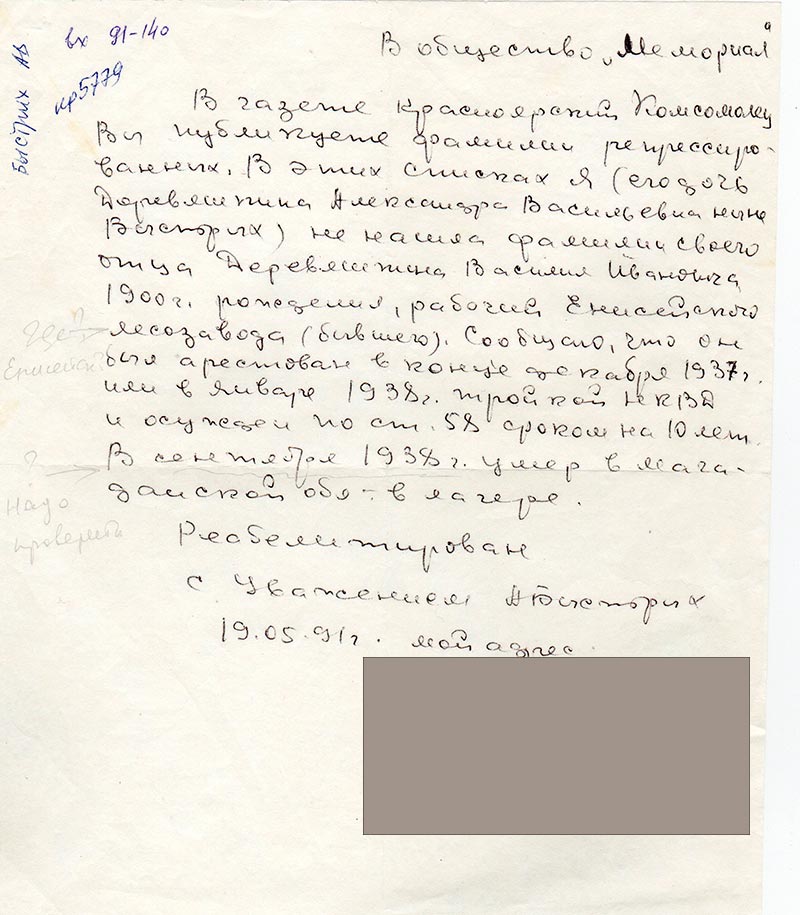 Быстрих АВ
вх 91-140
кр5779
В общество „Мемориал"
В газете Красноярский Комсомолец
Вы публикуете фамилии репрессиро-
ванных. В этих списках я (его дочь
Деревяшкина Александра Васильевна ныне
Быстрих) не нашла фамилии своего
отца Деревяшкина Василия Ивановича
1900г. рождения, рабочий Енисейского
лесозавода (бывшего). Сообщаю, что он
был арестован в конце декабря 1937г.
или в январе 1938г. тройкой НКВД
и осужден по ст. 58 сроком на 10 лет.
В сентября 1938г. умер в мага-
данской обл- в лагере.
?
Надо
проверить
Реабелитирован
с Уважением АБыстрих
19.05.91г. мой адрес